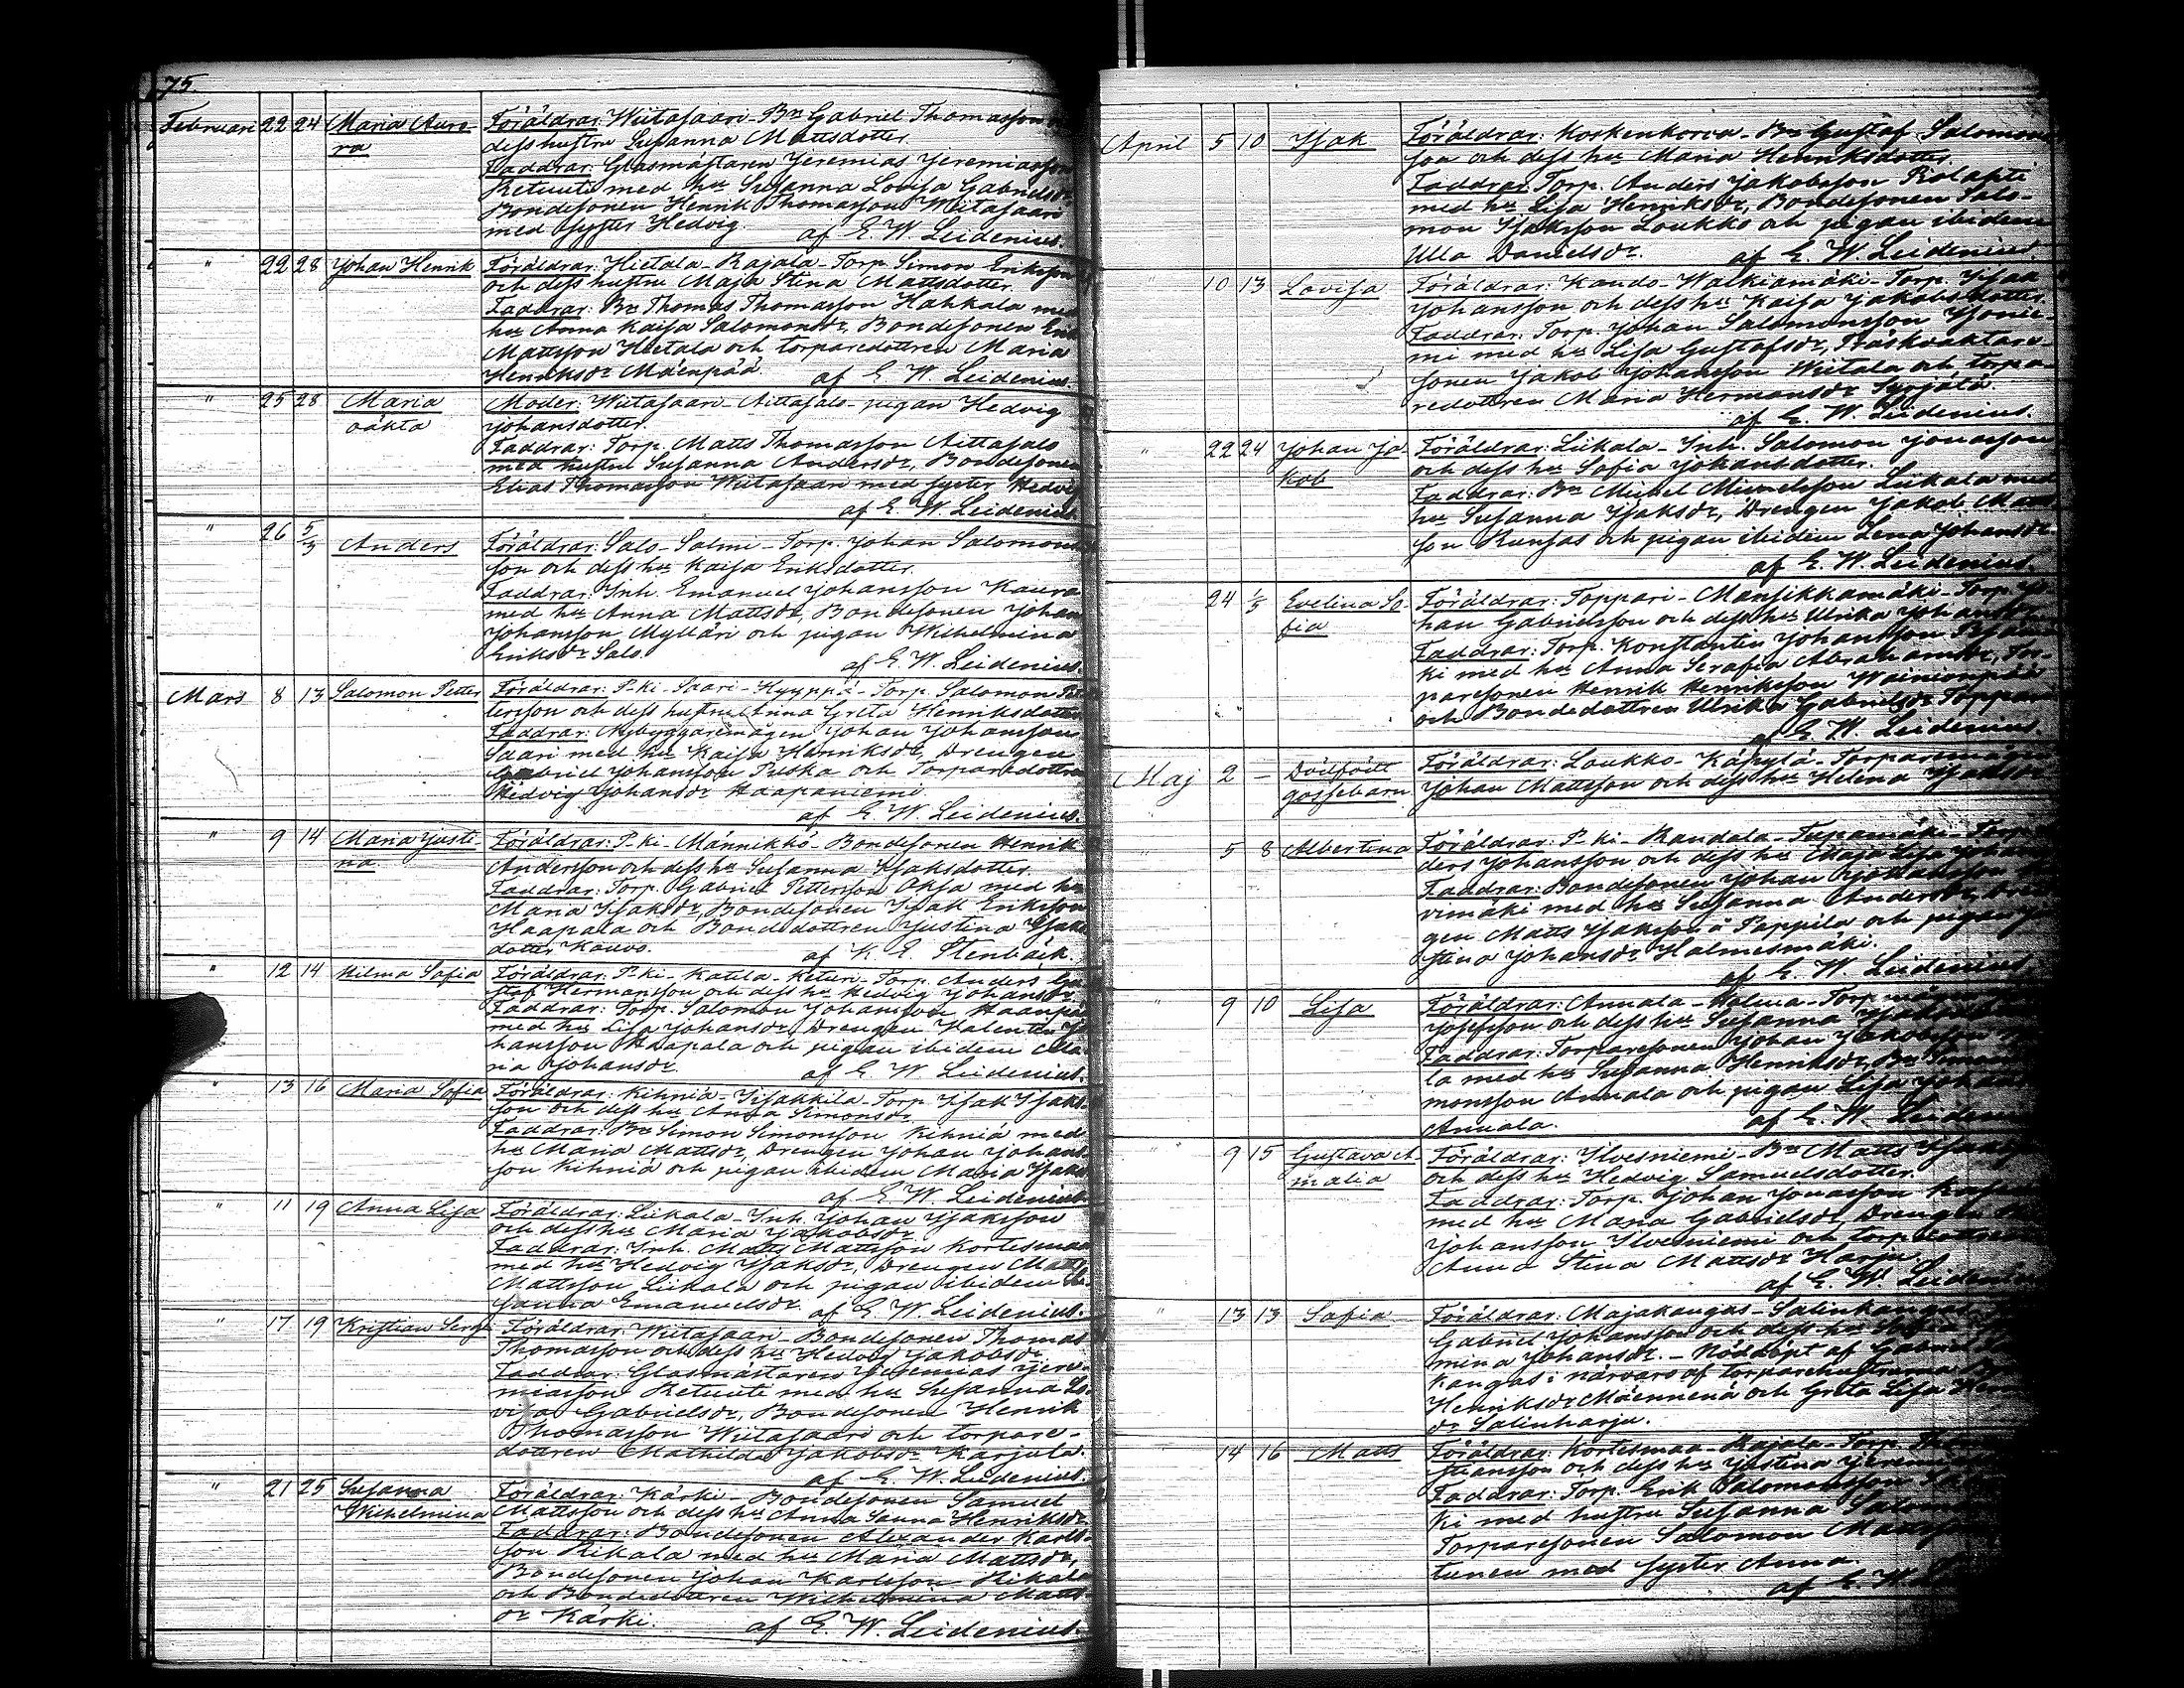 75.
Februari 22 24 Maria Auro- Föräldrar: Wiitasaari - Bn Gabriel Thomasson och
ra dess hustru Susanna Mattsdotter.
Faddrar: Glasmästaren Jeremias Jeremiasson
Retuuti med hu Susanna Lovisa Gabrielsdr,
Bondesonen Henrik Thomasson Wiitasaari
med syster Hedvig. af E. W. Leidenius.
" 22 28 Johan Henrik Föräldrar: Hietala - Rajala - Torp. Simon Eriksson
och dess hustru Maja Stina Mattsdotter.
Faddrar: Bn Thomas Thomasson Hakkala med
hu Anna Kaisa Salomonsdr, Bondesonen Erik
Mattsson Hietala och torparedottren Maria
Henriksdr Mäenpää. af E. W. Leidenius.
" 25 28 Maria Moder: Wiitasaari - Aittasalo - pigan Hedvig
oäkta Johansdotter.
Faddrar: Torp. Matts Thomasson Aittasalo
med hustru Susanna Andersdr, Bondesonen
Elias Thomasson Wiitasaari med syster Hedvig
af E. W. Leidenius.
" 26 5/3 Anders Föräldrar: Salo - Salmi - Torp. Johan Salomons-
son och dess hu Kaisa Eriksdotter.
Faddrar: Inh. Emanuel Johansson Kaura
med hu Anna Mattsdr, Bondesonen Johan
Johansson Mylläri och pigan Wilhelmina
Eriksdr Salo. af E. W. Leidenius.
Mars 8 13 Salomon Petter Föräldrar: P-ki - Saari - Kyyppä - Torp. Salomon Pet-
tersson och dess hustru Anna Greta Henriksdotter
Faddrar: Nybyggaremågen Johan Johansson
Saari med hu Kaisa Henriksdr, Drengen
Gabriel Johansson Puska och Torparedottren
Hedvig Johansdr Haapaniemi.
af E. W. Leidenius.
" 9 14 Maria Justi- Föräldrar: P-ki - Männikkö - Bondesonen Henrik
na Andersson och dess hu Susanna Isaksdotter.
Faddrar: Torp. Gabriel Pettersson Oksa med hu
Maria Isaksdr, Bondesonen Isak Eriksson
Haapala och Bondedottren Justina Isaks-
dotter Kauvo. af K. E. Stenbäck.
" 12 14 Hilma Sofia Föräldrar: P-ki - Katila - Keturi - Torp. Anders Gu-
staf Hermansson och dess hu Hedvig Johansdr.
Faddrar: Torp. Salomon Johansson Haanpää
med hu Lisa Johansdr, Drengen Valentin Jo-
hansson Haapala och pigan ibidem Ma-
ria Johansdr. af E. W. Leidenius.
" 13 16 Maria Sofia Föräldrar: Kihniä - Iisakkila - Torp. Isak Isaks-
son och dess hu Anna Simonsdr.
Faddrar: Bn Simon Simonsson Kihniä med
hu Maria Mattsdr, Drengen Johan Johans-
son Kihniä och pigan ibidem Maria Isaksdr
af E. W. Leidenius.
" 11 19 Anna Lisa Föräldrar: Liikala - Inh. Johan Isaksson
och dess hu Maria Jakobsdr.
Faddrar: Inh. Matts Mattsson Kortesmaa
med hu Hedvig Isaksdr, Drengen Matts
Mattsson Liikala och pigan ibidem Su-
sanna Emanuelsdr. af E. W. Leidenius.
" 17 19 Kristian Serge Föräldrar: Wiitasaari - Bondesonen Thomas
Thomasson och dess hu Hedvig Jakobsdr.
Faddrar: Glasmästaren Jeremias Jere-
miasson Retuuti med hu Susanna Lo-
visa Gabrielsdr, Bondesonen Henrik
Thomasson Wiitasaari och torpare-
dottren Mathilda Jakobsdr Karjula.
af E. W. Leidenius.
" 21 25 Susanna Föräldrar: Kärki - Bondesonen Samuel
Wilhelmina Mattsson och dess hu Anna Sanna Henriksdr.
Faddrar: Bondesonen Alexander Karls-
son Rikala med hu Maria Mattsdr,
Bondesonen Johan Karlsson Rikala
och Bondedottren Wilhelmina Matts-
dr Kärki. af E. W. Leidenius.
April 5 10 Isak Föräldrar: Koskenkorva - Bn Gustaf Salomons-
son och dess hu Maria Henriksdotter.
Faddrar: Torp. Anders Jakobsson Rislapti
med hu Lisa Henriksdr, Bondesonen Salo-
mon Isaksson Loukko och pigan ibidem
Ulla Danielsdr. af E. W. Leidenius.
10 13 Lovisa Föräldrar: Kando - Walkiamäki - Torp. Isak
Johansson och dess hu Kaisa Jakobsdotter.
Faddrar: Torp. Johan Salomonsson Isonie-
mi med hu Lisa Gustafsdr, Båskvaktare-
sonen Jakob Johansson Wiitala och torpa-
redottren Maria Hermansdr Syrjälä.
af E. W. Leidenius.
" 22 24 Johan Ja- Föräldrar: Liikala - Inh. Salomon Jonasson
kob och dess hu Sofia Johansdotter.
Faddrar: Bn Michel Michelsson Liikala med
hu Susanna Isaksdr, Drengen Jakob Mats-
son Kunsas och pigan ibidem Lena Johansdr
af E. W. Leidenius.
24 1/5 Evelina So- Föräldrar: Toppari - Mansikkamäki - Torp. Jo-
fia han Gabrielsson och dess hu Ulrika Johansdr
Faddrar: Torp. Konstantin Johansson
ki med hu Anna Serafia Abrahamsdr, Tor-
paresonen Henrik Henriksson Wainionpää
och Bondedottren Ulrika Gabrielsdr Toppari
af E. W. Leidenius.
Maj 2 - Dödfödt Föräldrar: Loukko - Käpylä - Torparemågen
gossebarn. Johan Mattsson och dess hu Helena Isaksdr
5 8 Albertina Föräldrar: P-ki - Randala - Tupamäki - Torp.
ders Johansson och dess hu Maja Lisa
Faddrar: Bondesonen Johan Johansson
vimäki med hu Susanna Andersdr, Dren-
gen Matts Isaksson å Pappila och pigan
Stina Johansdr Halmesmäki.
af E. W. Leidenius.
" 9 10 Lisa Föräldrar: Annala - Halma - Torp.
Josefsson och dess hu Susanna
Faddrar: Torparesonen Johan Jakobsson
la med hu Susanna Henriksdr, Bn Simon
monsson Annala och pigan Lisa Johans
Annala. af E. W. Leidenius
" 9 15 Gustava A- Föräldrar: Ilvesniemi - Bn Matts
malia och dess hu Hedvig Samuelsdotter.
Faddrar: Torp. Johan Jonasson
med hu Maria Gabrielsdr, Drengen
Johansson Ilvesniemi och torparedottren
Anna Stina Mattsdr Harju.
af E. W. Leidenius
" 13 13 Sofia Föräldrar: Majakangas - Salinkangas
Gabriel Johansson och dess hu
mina Johansdr. - Nöddöpt af Gabriel
kangas i närvaro af torparehustrurna
Henriksdr Mäennena och Greta Lisa
dr Salinharju.
14 16 Matts Föräldrar: Kortesmaa - Rajala - Torp.
och dess hu Justina
Faddrar: Torp. Erik Salomonsson
ki med hustru Susanna
Torparesonen Salomon
tunen med syster Anna.
af E. W.